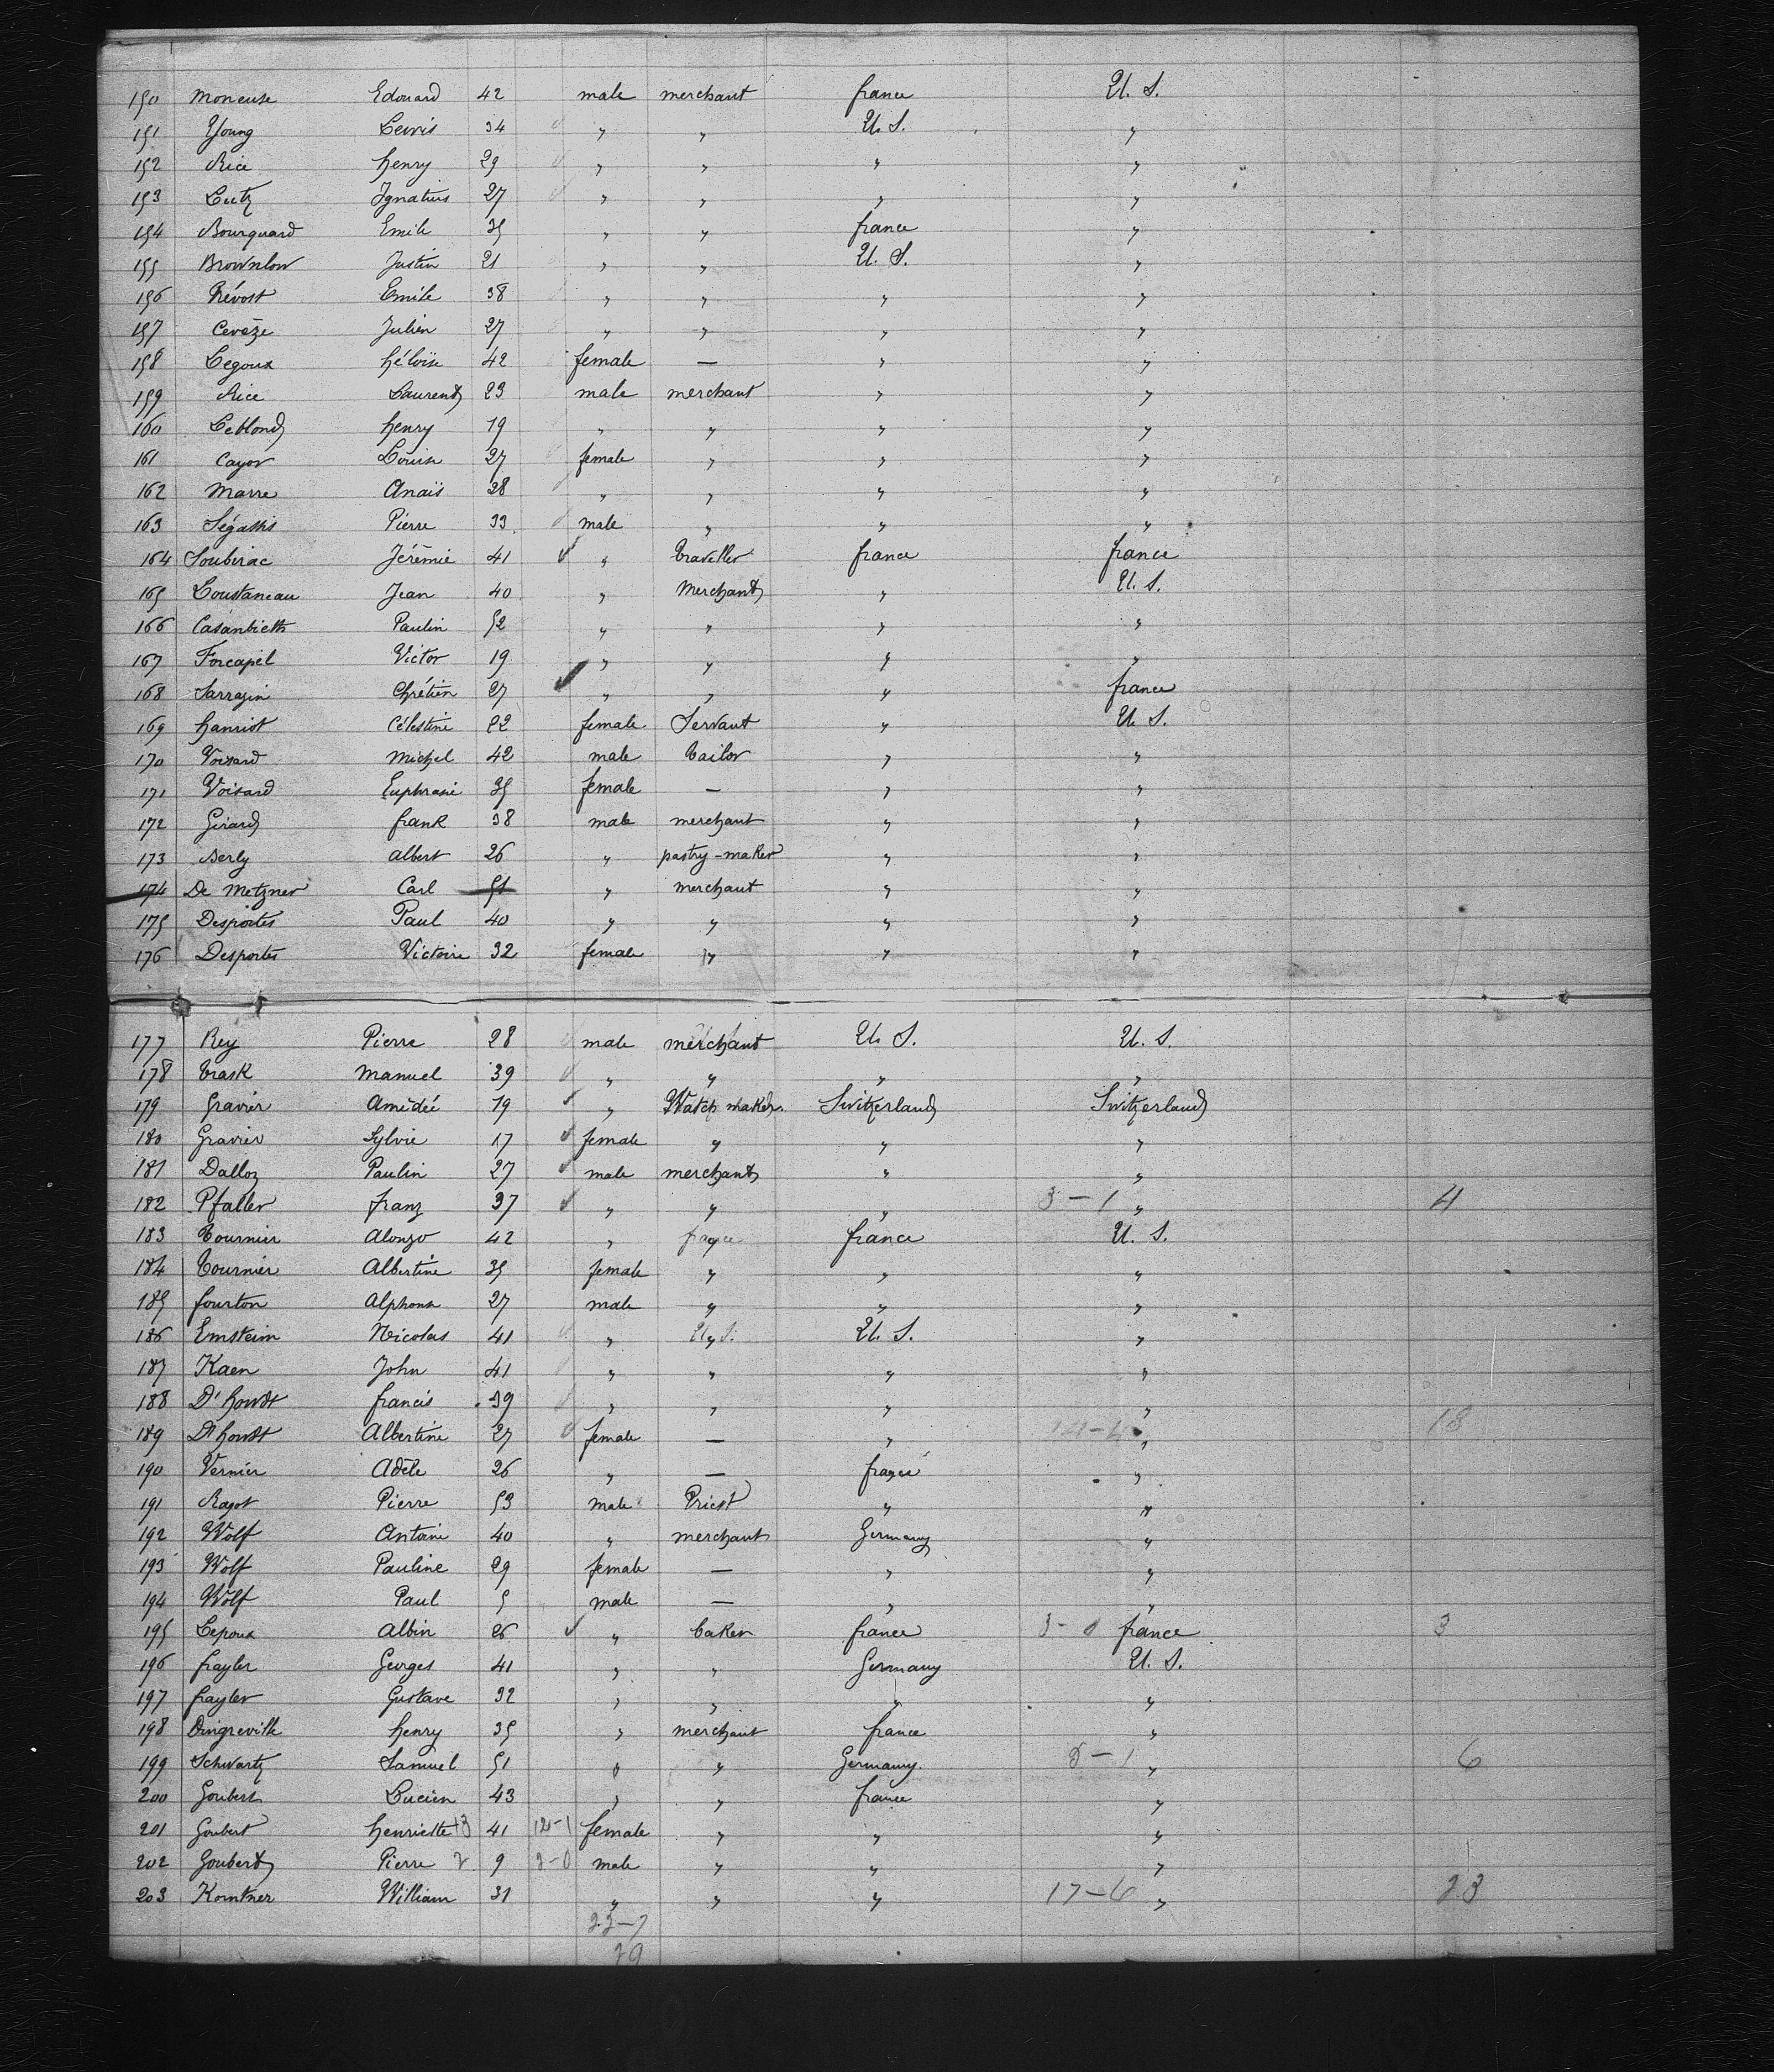 150 Moneuse Edouard 42 male merchant france U. S.
151 Young Lewis 34 " " U. S. "
152 Rice henry 29 " " " "
153 Lutz Ignatius 27 " " " "
154 Bourquard Emile 35 " " france "
155 Brownlow Justin 21 " " U. S. "
156 Prévost Emile 38 " " " "
157 Cevèze Julien 27 " " " "
158 Legoux héloïse 42 female — " "
159 Rice Laurent 23 male merchant " "
160 Leblond henry 19 " " " "
161 Cayor Louise 27 female " " "
162 Marre Anaïs 28 " " " "
163 Pierre 33 male " " "
164 Soubirac Jérémie 41 ✓ " traveller france france
165 Loustaneau Jean 40 " Merchant " U. S.
166 Casanbieth Paulin 52 " " " "
167 Forcapel Victor 19 " " " "
168 Sarrazin Chrétien 27 ✓ " " " france
169 hanriot Célestine 22 female Servant " U. S.
170 Voisard Michel 42 male tailor " "
171 Voisard Euphrasie 35 female — " "
172 Girard frank 38 male merchant " "
173 Berly albert 26 " pastry-maker " "
174 De Metzner Carl 51 " merchant " "
175 Desportes Paul 40 " " " "
176 Desportes Victoire 32 female " " "
177 Rey Pierre 28 male merchant U. S. U. S.
178 Trask Manuel 39 " " " "
179 Gravier Amédée 19 ✓ " Watch maker Switzerland Switzerland
180 Gravier Sylvie 17 ✓ female " " "
181 Dalloz Paulin 27 ✓ male merchant " "
182 Pfaller franz 37 ✓ " " " 3-1 " 4
183 Tournier Alonzo 42 " france france U. S.
184 Tournier Albertine 35 female " " "
185 fourton Alphonse 27 male " " "
186 Emsteim Nicolas 41 " U. S. U. S. "
187 Kaen John 41 " " " "
188 D'houdt francis 39 " " " "
189 D'houdt Albertine 27 female — " 14-4 " 18
190 Vernier Adèle 26 " — france "
191 Ragot Pierre 53 male Priest " "
192 Wolf Antoine 40 " merchant Germany "
193 Wolf Pauline 29 female — " "
194 Wolf Paul 5 male — " "
195 Lepoux Albin 26 ✓ " baker france 3-0 france 3
196 frayler Georges 41 " " Germany U. S.
197 frayler Gustave 32 " " " "
198 Dingreville henry 35 " merchant france "
199 Schwartz Samuel 51 " " Germany 5-1 " 6
200 Goubert Lucien 43 " " france "
201 Goubert henriette 13 41 12-1 female " " "
202 Goubert Pierre 2 9 2-0 male " " "
203 Komtner William 31 " " " 17-6 " 23
22-7
29